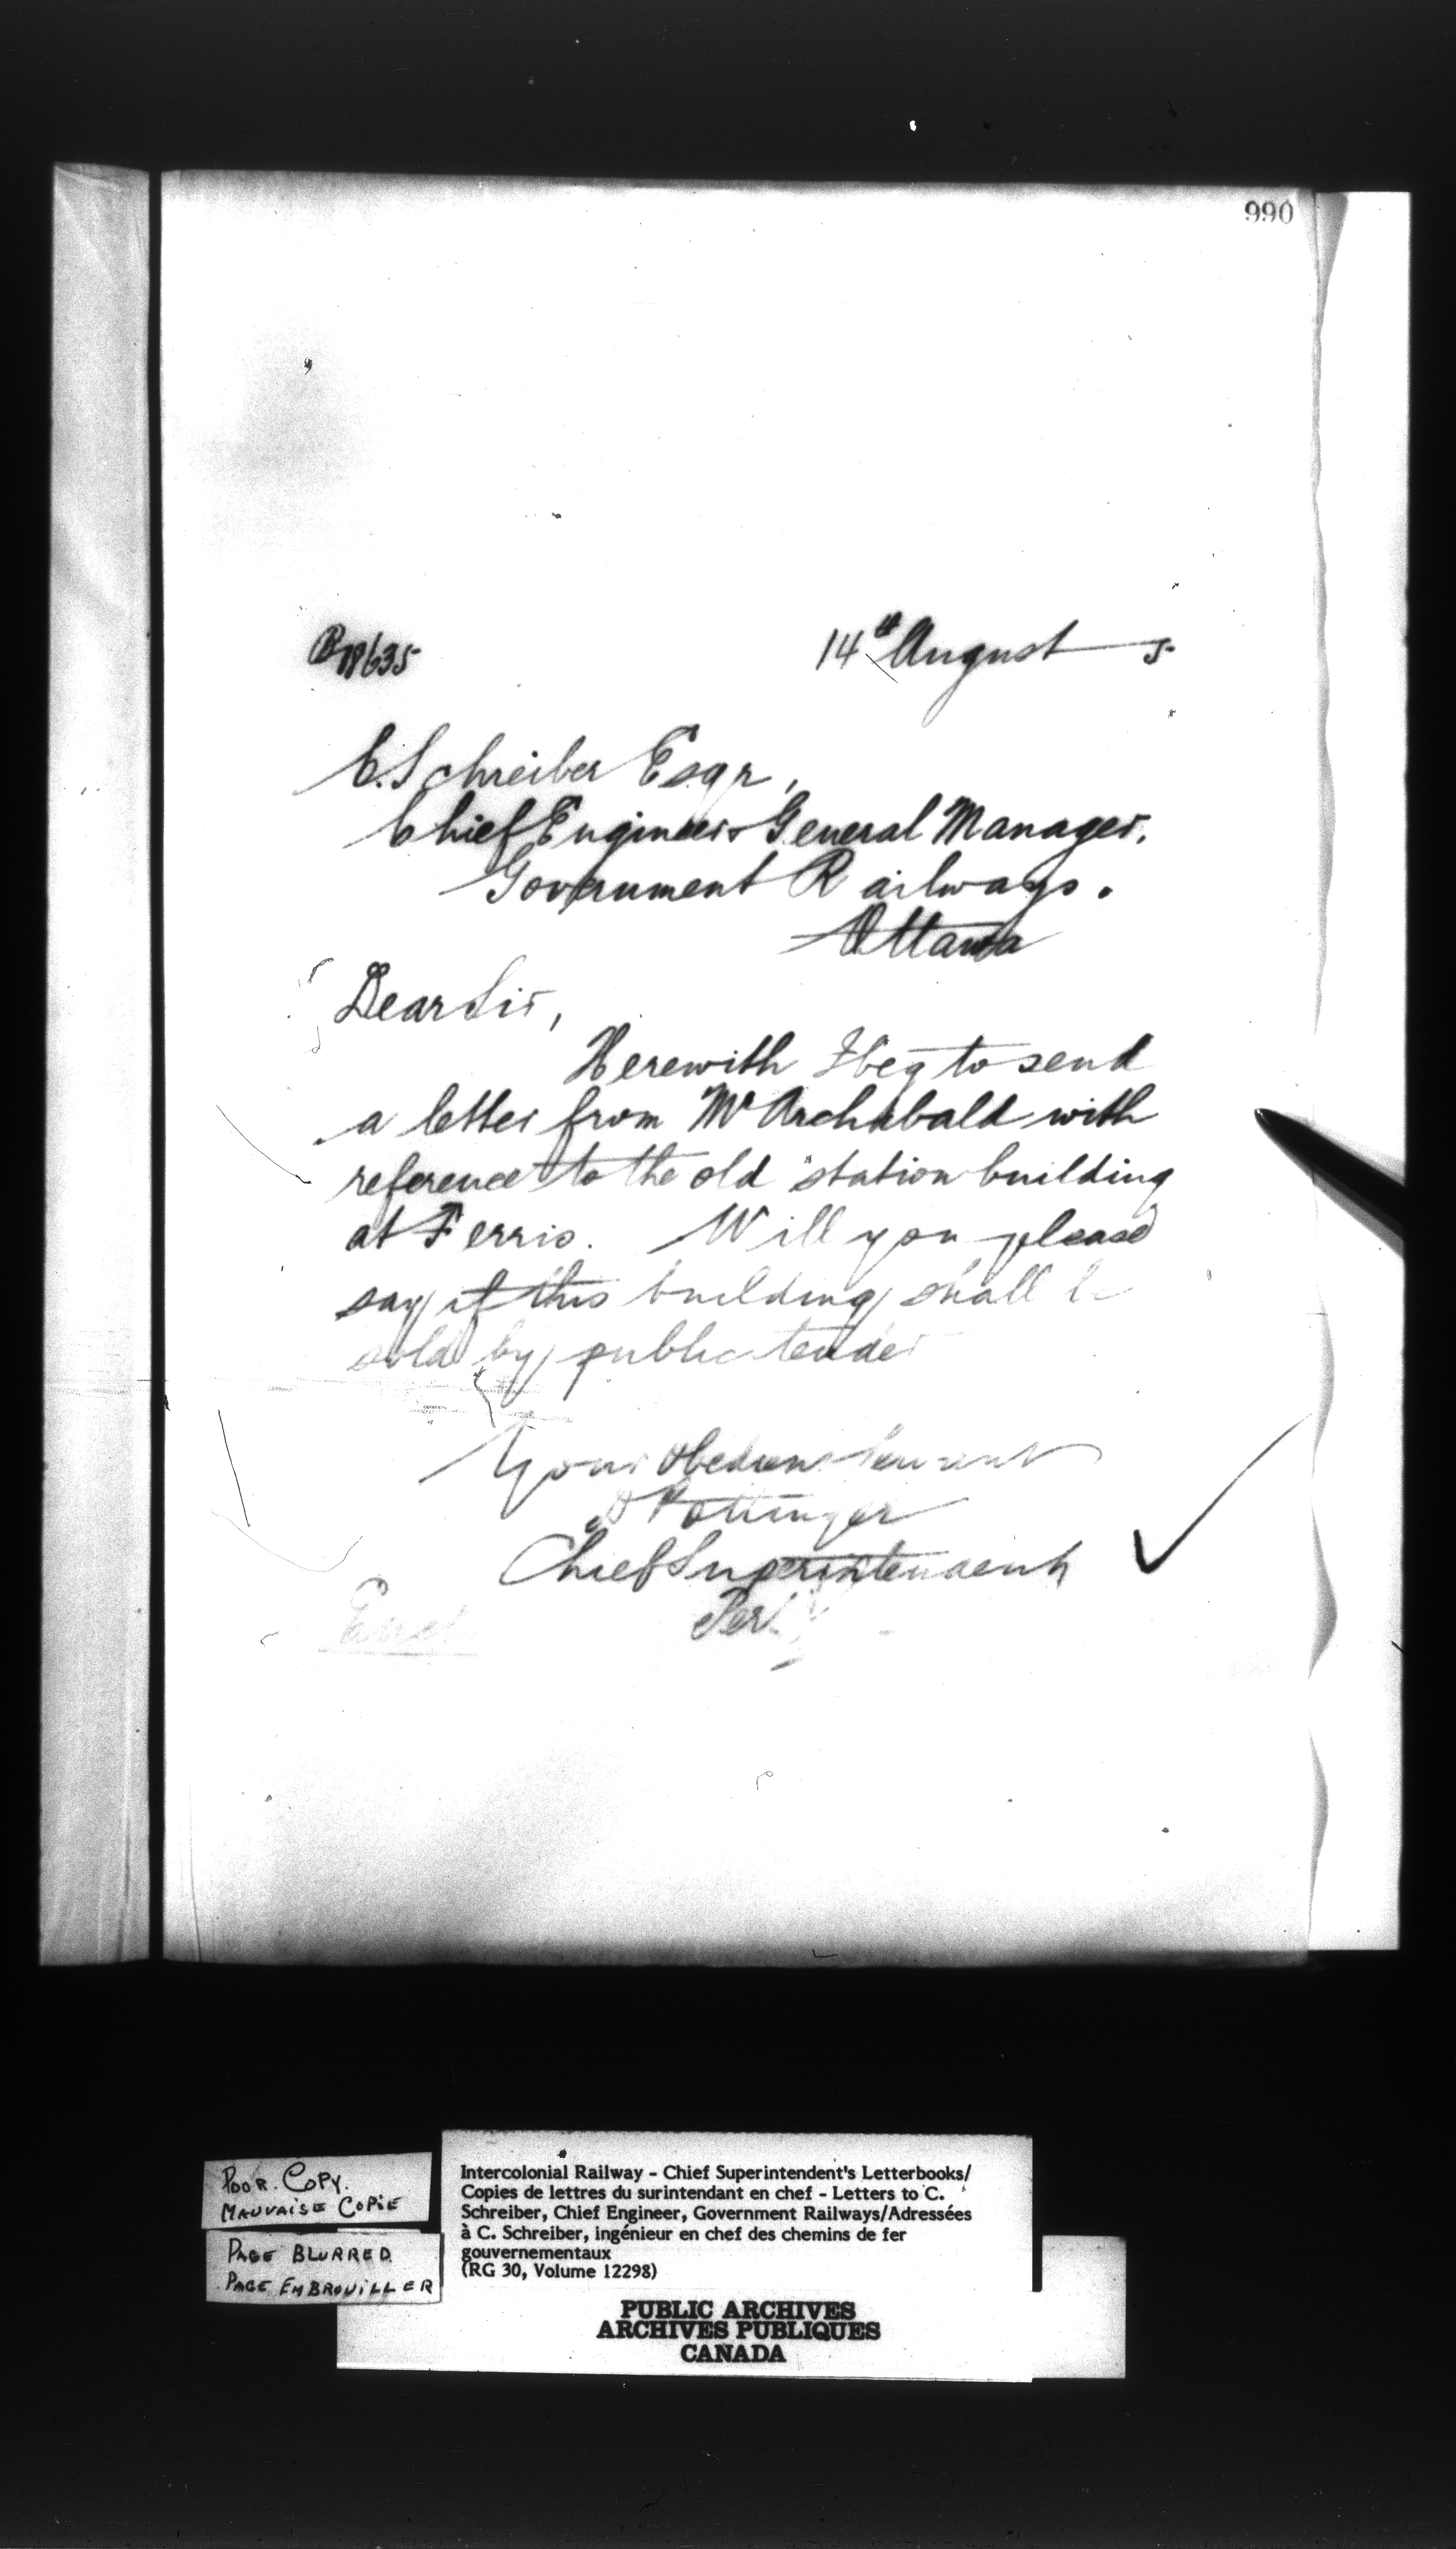 990
B18635 14th August 5
C. Schreiber Esqr,
Chief Engineer & General Manager,
Government Railways.
Ottawa
Dear Sir,
Herewith I beg to send
a letter from Mr Archibald with
reference to the old station building
at Ferris. Will you please
say if this building shall be
sold by public tender
Your Obedient Servant
D Pottinger
Chief Superintendent
Per
POOR COPY.
MAUVAISE COPIE
PAGE BLURRED
PAGE EMBROUILLER
Intercolonial Railway - Chief Superintendent's Letterbooks/
Copies de lettres du surintendant en chef - Letters to C.
Schreiber, Chief Engineer, Government Railways/Adressées
à C. Schreiber, ingénieur en chef des chemins de fer
gouvernementaux
(RG 30, Volume 12298)
PUBLIC ARCHIVES
ARCHIVES PUBLIQUES
CANADA